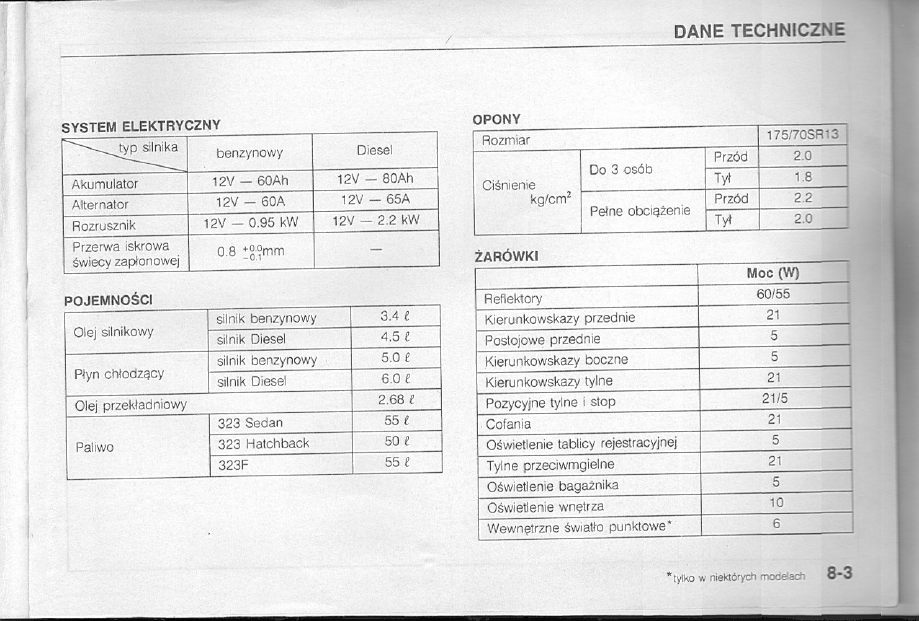 DANE TECHNICZNE
SYSTEM ELEKTRYCZNY
typ silnika benzynowy Diesel
Akumulator 12V — 60Ah 12V — 80Ah
Alternator 12V — 60A 12V — 65A
Rozrusznik 12V — 0.95 kW 12V — 2.2 kW
Przerwa iskrowa
świecy zapłonowej 0.8 +0.0 -0.1 mm —
POJEMNOŚCI
Olej silnikowy silnik benzynowy 3.4 ℓ
silnik Diesel 4.5 ℓ
Płyn chłodzący silnik benzynowy 5.0 ℓ
silnik Diesel 6.0 ℓ
Olej przekładniowy 2.68 ℓ
Paliwo 323 Sedan 55 ℓ
323 Hatchback 50 ℓ
323F 55 ℓ
OPONY
Rozmiar 175/70SR13
Ciśnienie
kg/cm² Do 3 osób Przód 2.0
Tył 1.8
Pełne obciążenie Przód 2.2
Tył 2.0
ŻARÓWKI
Moc (W)
Reflektory 60/55
Kierunkowskazy przednie 21
Postojowe przednie 5
Kierunkowskazy boczne 5
Kierunkowskazy tylne 21
Pozycyjne tylne i stop 21/5
Cofania 21
Oświetlenie tablicy rejestracyjnej 5
Tylne przeciwmgielne 21
Oświetlenie bagażnika 5
Oświetlenie wnętrza 10
Wewnętrzne światło punktowe* 6
*tylko w niektórych modelach 8-3